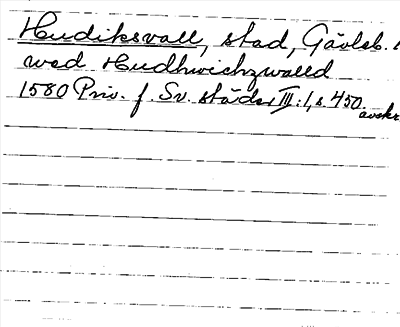 Hudiksvall, stad, Gävleb.
wed Hudhwichzwalld
1580 Priv. f. Sv. städer III:1, s. 450
avskr.